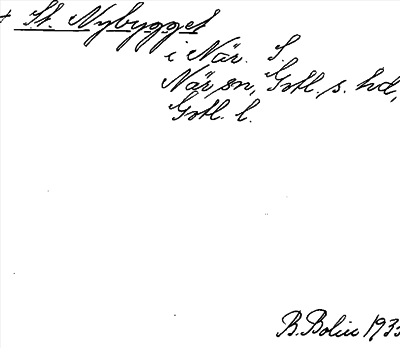 + St. Nybygget
i När. S.
När sn, Gotl. s. hd,
Gotl. l.
B. Bolin 1933